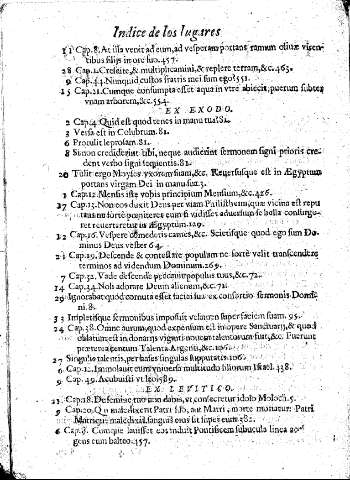 Indice de los lugares
11 Cap.8. At illa venit ad eum, ad vesperam portans ramum oliuæ viren-
tibus folijs in ore suo. 457.
28 Cap.1. Crescite, & multiplicamini, & replete terram, &c. 463.
9 Cap.4. Nunquid custos fratris mei sum ego? 551.
15 Cap.21. Cumque consumpta esset aqua in vtre abiecit, puerum subter
vnam arborem, &c. 554.
EX EXODO.
2 Cap.4. Quid est quod tenes in manu tua? 81.
3 Versa est in Colubrum. 81.
6 Protulit leprosam. 81.
8 Si non crediderint tibi, neque audierint sermonem signi prioris cre-
dent verbo signi sequentis. 81.
20 Tulit ergo Moyses vxorem suam, &c. Reuersusque est in Ægyptum
portans virgam Dei in manu sua. 3.
Cap.12. Mensis iste vobis principium Mensium, &c. 426.
17 Cap.13. Non eos duxit Deus per viam Philisthæim, quæ vicina est repu
tans ne forte pœniteret eum si vidisset aduersum se bella consurge-
re & reuerteretur in Ægyptum. 129.
12 Cap.16. Vespere comedetis carnes, &c. Scietisque quod ego sum Do-
minus Deus vester 64.
21 Cap.19. Descende & contestare populum ne forte velit transcendere
terminos ad videndum Dominum. 269.
7 Cap.32. Vade descende peccauit populus tuus, &c. 72.
14 Cap.34. Noli adorare Deum alienum, &c. 71.
29 Ignorabat quod cornuta esset facies sua ex consortio sermonis Domi-
ni. 8.
33 Impletisque sermonibus imposuit velamen super faciem suam. 95.
24 Cap.38. Omne aurum, quod expensum est in opere Sanctuarij, & quod
oblatum est in donarijs viginti nouem talentorum fuit, &c. Fuerunt
præterea centum Talenta Argenti, &c. 106.
27 Singula talenta, per bases singulas supputatis. 106.
6 Cap.12. Immolauit eum vniuersa multitudo filiorum Israel. 438.
9 Cap. 49. Accubuisti vt leo 589.
EX LEVITICO.
21 Cap.18. De semine tuo non dabis, vt consecretur idolo Moloch. 5.
9 Cap.20. Qui maledixerit Patri suo, aut Matri, morte moriatur: Patri
Matrique maledixit, sanguis eius sit super eum 382.
6 Cap.8. Cumque lauisset eos induit Pontificem subucula linea
gens eum balteo. 457.